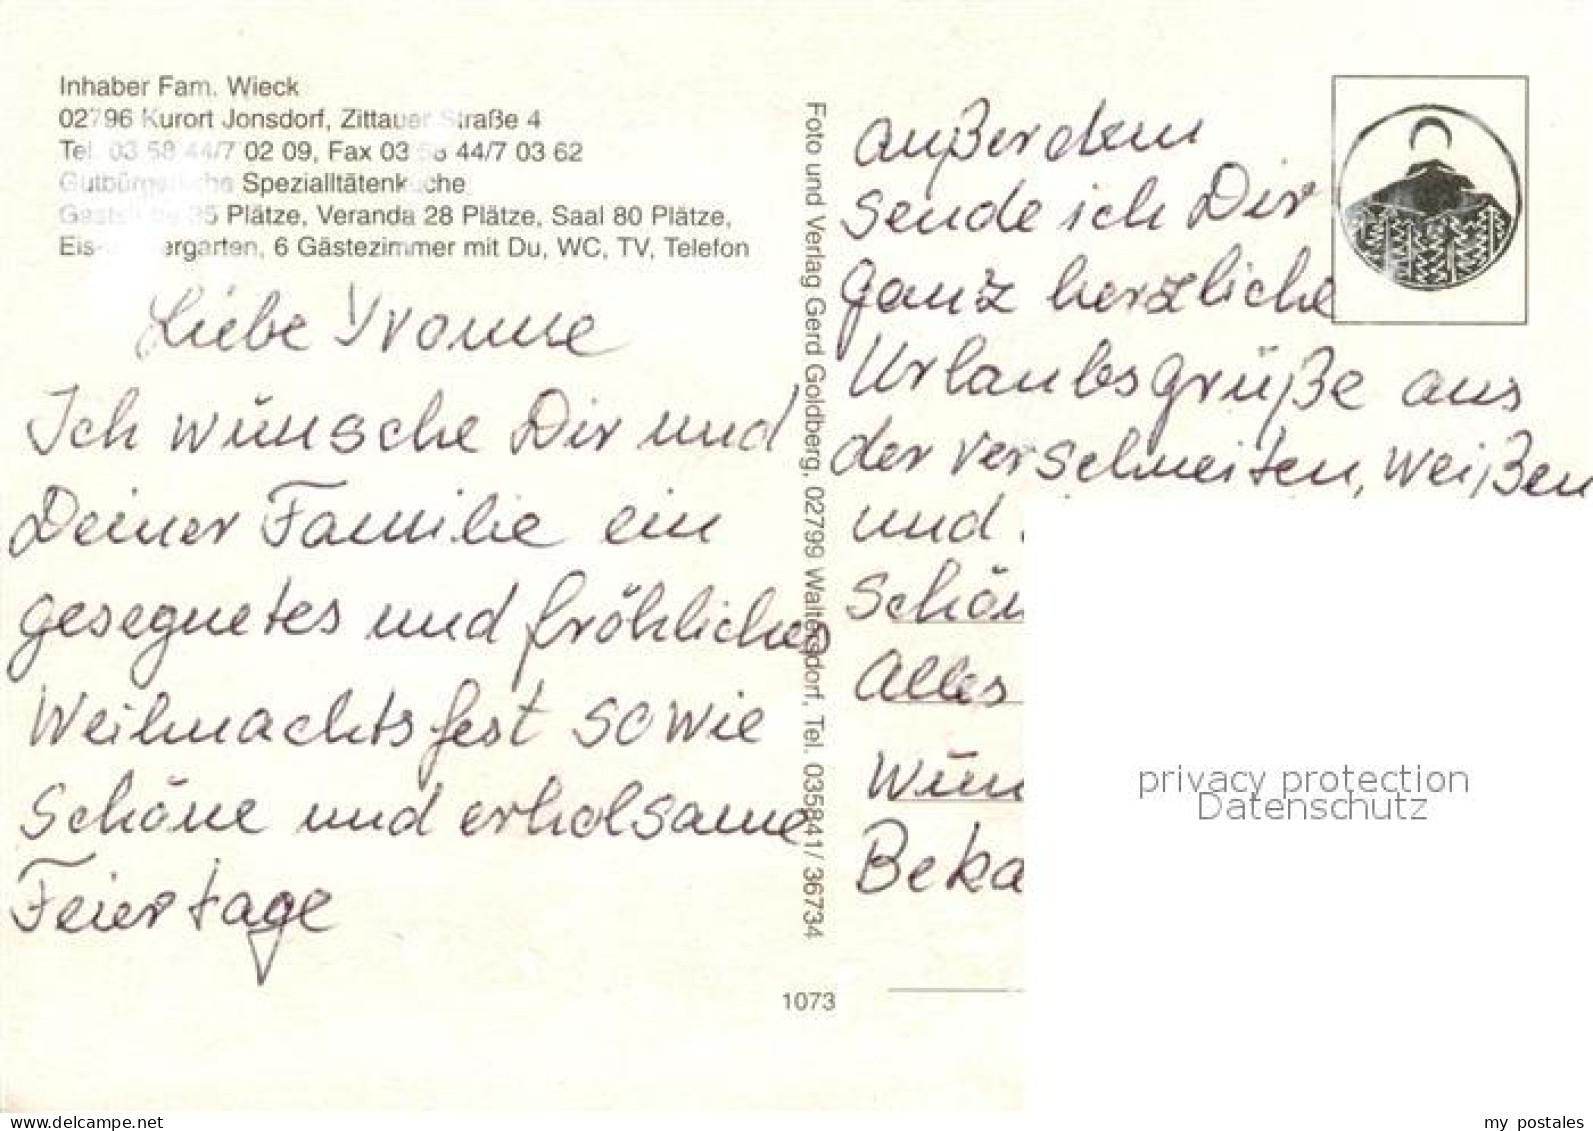 Inhaber Fam. Wieck
02796 Kurort Jonsdorf, Zittauer Straße 4
Tel. 03 58 44/7 02 09, Fax 03 58 44/7 03 62
Gutbürgerliche Spezialltätenküche
Gaststube 35 Plätze, Veranda 28 Plätze, Saal 80 Plätze,
6 Gästezimmer mit Du, WC, TV, Telefon
Liebe Yvonne
Ich wünsche Dir und
Deiner Familie ein
gesegnetes und fröhliches
Weihnachtsfest sowie
schöne und erholsame
Feiertage
1073
Foto und Verlag Gerd Goldberg, 02799 Waltersdorf, Tel. 035841/ 36734
außerdem
sende ich Dir
ganz herzliche
Urlaubsgrüße aus
der verschneiten, weißen
und
schön
Alles
Wün
Beka
privacy protection
Datenschutz
my postales
www.delcampe.net